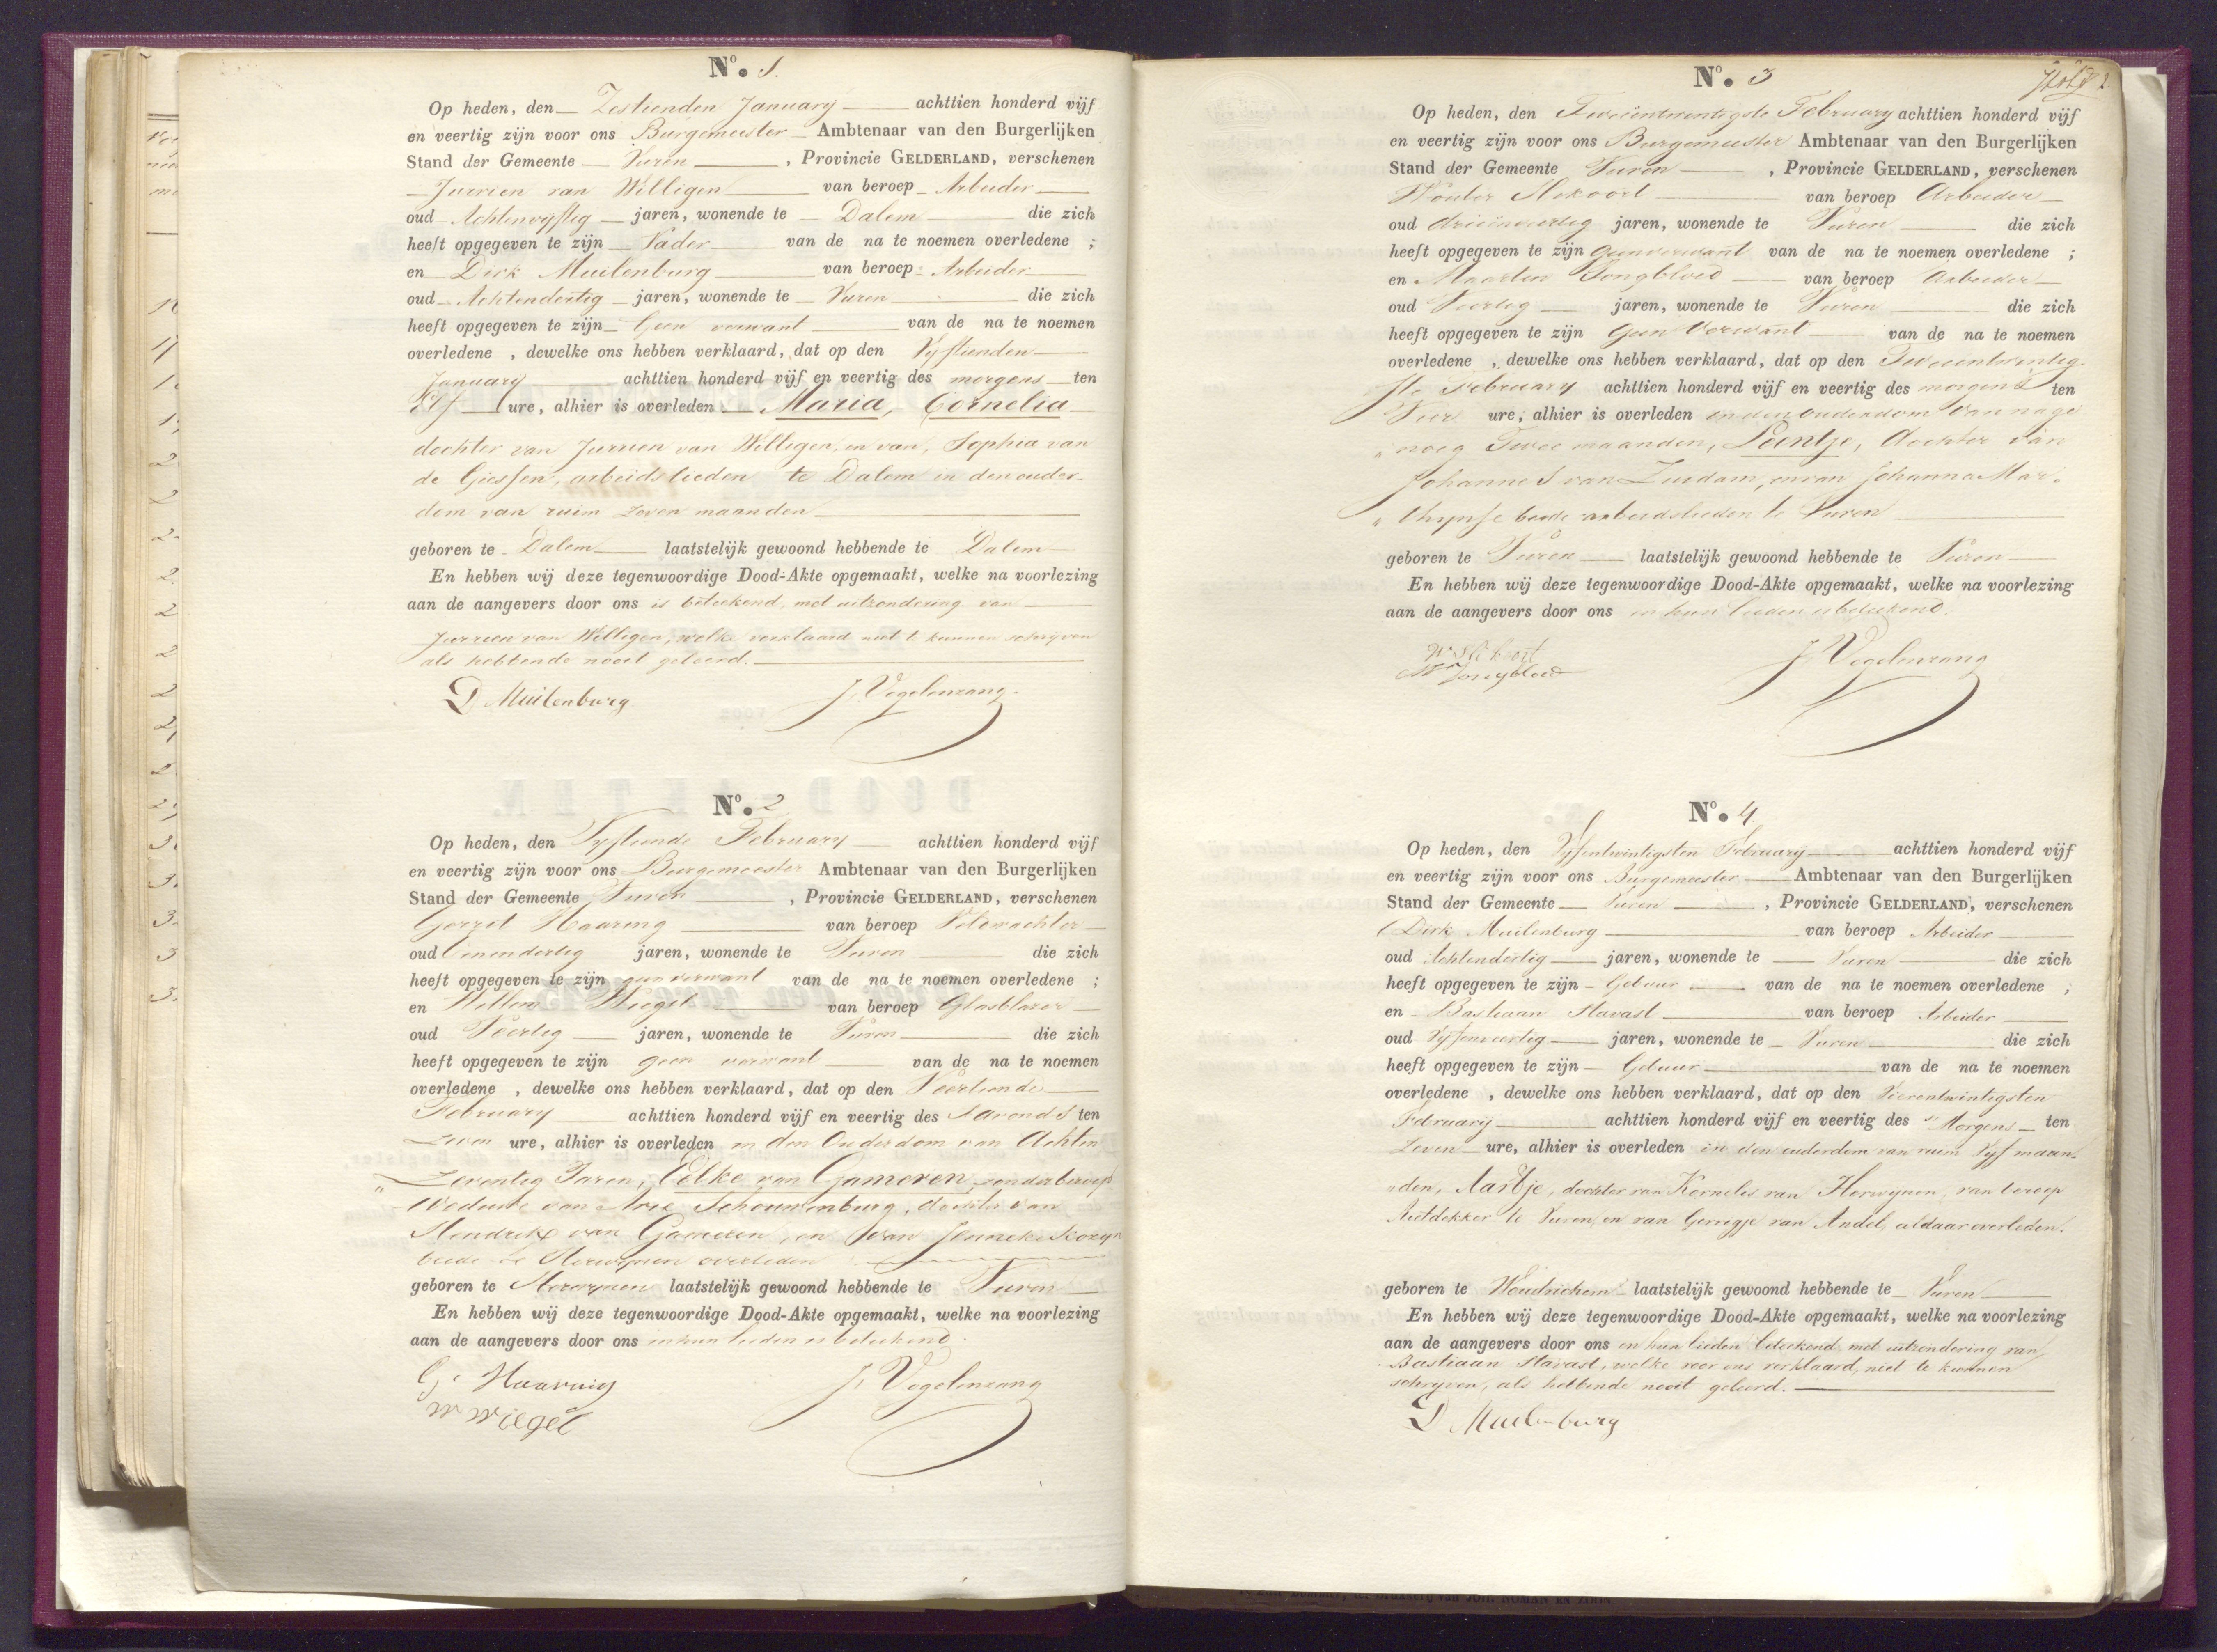 No. 1.
Op heden, den Zestienden January achttien honderd vijf
en veertig zijn voor ons Burgemeester Ambtenaar van den Burgerlijken
Stand der Gemeente Vuren, Provincie GELDERLAND, verschenen
Jurrien van Willigen van beroep Arbeider
oud Achtenvyftig jaren, wonende te Dalem die zich
heeft opgegeven te zijn Vader van de na te noemen overledene ;
en Dirk Muilenburg van beroep Arbeider
oud Achtendertig jaren, wonende te Vuren die zich
heeft opgegeven te zijn Geen verwant van de na te noemen
overledene , dewelke ons hebben verklaard, dat op den Vyftienden
January achttien honderd vijf en veertig des morgens ten
Elf ure, alhier is overleden Maria, Cornelia
dochter van Jurrien van Willigen, en van, Sophia van
de Giessen, arbeidslieden te Dalem in den ouder-
dom van ruim zeven maanden
geboren te Dalem laatstelijk gewoond hebbende te Dalem
En hebben wij deze tegenwoordige Dood-Akte opgemaakt, welke na voorlezing
aan de aangevers door ons is geteekend, met uitzondering van
Jurrien van Willigen, welke verklaard niet te kunnen schrijven
als hebbende nooit geleerd.
D Muilenburg J. Vogelenzang
No. 2
Op heden, den Vyftiende February achttien honderd vijf
en veertig zijn voor ons Burgemeester Ambtenaar van den Burgerlijken
Stand der Gemeente Vuren, Provincie GELDERLAND, verschenen
Gerret Haaring van beroep Veldwachter
oud Eenendertig jaren, wonende te Vuren die zich
heeft opgegeven te zijn geen verwant van de na te noemen overledene ;
en Willem Wiegel van beroep Glasblazer
oud Veertig jaren, wonende te Vuren die zich
heeft opgegeven te zijn geen verwant van de na te noemen
overledene , dewelke ons hebben verklaard, dat op den Veertiende
February achttien honderd vijf en veertig des Savonds ten
Zeven ure, alhier is overleden in den Ouderdom van Achten
„ Zeventig Jaren, Eelke van Gameren, zonder beroep
Weduwe van Arie Schouwenburg, dochter van
Hendrik van Gameren, en van Jenneke Kozyn
beide te Herwynen overleden
geboren te Herwynen laatstelijk gewoond hebbende te Vuren
En hebben wij deze tegenwoordige Dood-Akte opgemaakt, welke na voorlezing
aan de aangevers door ons en hun lieden is geteekend.
G. Haaring J. Vogelenzang
W Wiegel
No. 3
Op heden, den Tweeëntwintigste February achttien honderd vijf
en veertig zijn voor ons Burgemeester Ambtenaar van den Burgerlijken
Stand der Gemeente Vuren, Provincie GELDERLAND, verschenen
Wouter van beroep Arbeider
oud drieënveertig jaren, wonende te Vuren die zich
heeft opgegeven te zijn geen verwant van de na te noemen overledene ;
en Maarten Jongbloed van beroep Arbeider
oud Veertig jaren, wonende te Vuren die zich
heeft opgegeven te zijn Geen Verwant van de na te noemen
overledene , dewelke ons hebben verklaard, dat op den Tweeentwintig-
ste February achttien honderd vijf en veertig des morgens ten
Vier ure, alhier is overleden in den ouderdom van nage
„ noeg Twee maanden, Leentje, dochter van
Johannes van Zuidam, en van Johanna Mar-
„ beide arbeidslieden te Vuren
geboren te Vuren laatstelijk gewoond hebbende te Vuren
En hebben wij deze tegenwoordige Dood-Akte opgemaakt, welke na voorlezing
aan de aangevers door ons en hun lieden is geteekend.
J. Vogelenzang
M Jongbloed
No. 4
Op heden, den Vyfentwintigsten February achttien honderd vijf
en veertig zijn voor ons Burgemeester Ambtenaar van den Burgerlijken
Stand der Gemeente Vuren, Provincie GELDERLAND, verschenen
Dirk Muilenburg van beroep Arbeider
oud Achtendertig jaren, wonende te Vuren die zich
heeft opgegeven te zijn Gebuur van de na te noemen overledene ;
en Bastiaan Stavast van beroep Arbeider
oud Vyfenveertig jaren, wonende te Vuren die zich
heeft opgegeven te zijn Gebuur van de na te noemen
overledene , dewelke ons hebben verklaard, dat op den Vierentwintigsten
February achttien honderd vijf en veertig des Morgens ten
Zeven ure, alhier is overleden in den ouderdom van ruim Vyf maan-
„den, Aartje, dochter van Kornelis van Herwynen, van beroep
Rietdekker te Vuren, en van Gerrigje van Andel, aldaar overleden.
geboren te Woudrichem laatstelijk gewoond hebbende te Vuren
En hebben wij deze tegenwoordige Dood-Akte opgemaakt, welke na voorlezing
aan de aangevers door ons en hun lieden geteekend met uitzondering van
Bastiaan Stavast, welke voor ons verklaard, niet te kunnen
schryven, als hebbende nooit geleerd.
D Muilenburg